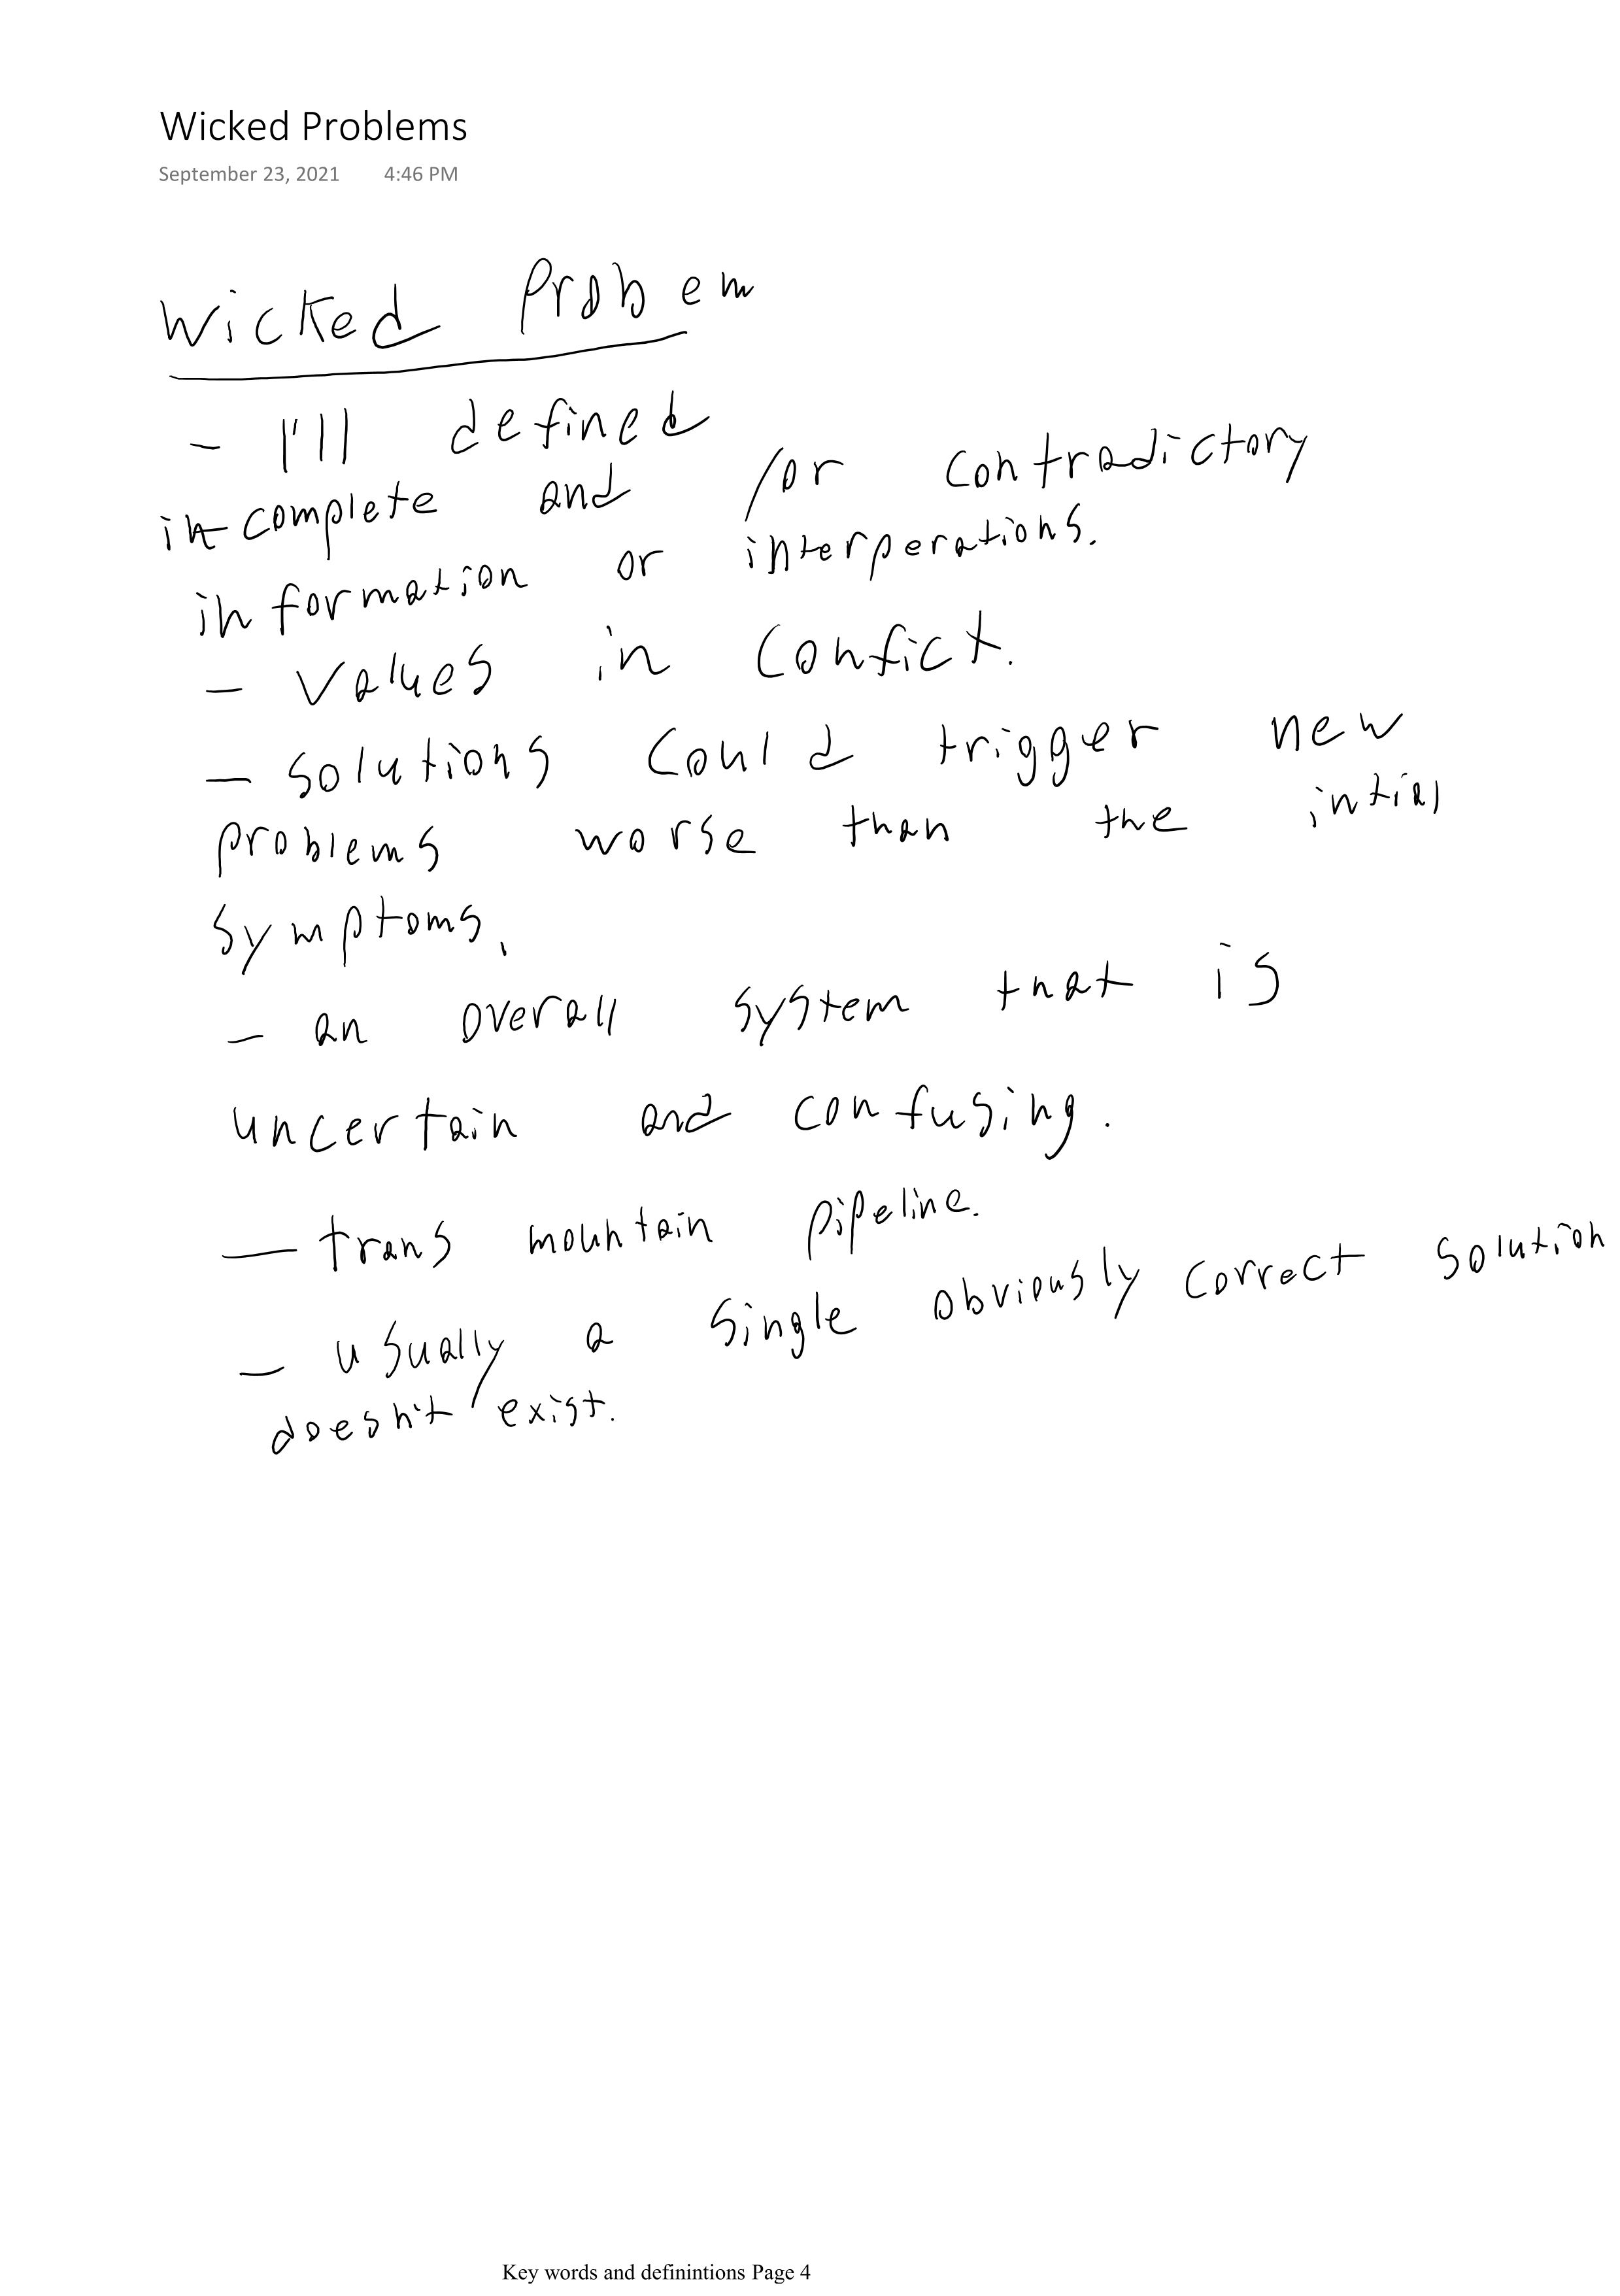 Wicked Problems
September 23, 2021 4:46 PM
Wicked Probem
- I'll defined
incomplete and /or contradictory
information or interperations.
- values in Confict.
- solutions Could trigger new
problems worse than the intial
symptoms.
- an overall system that is
uncertain and confusing.
- trans mountain pipeline.
- usually a single obviously correct solution
doesn't exist.
Key words and definintions Page 4